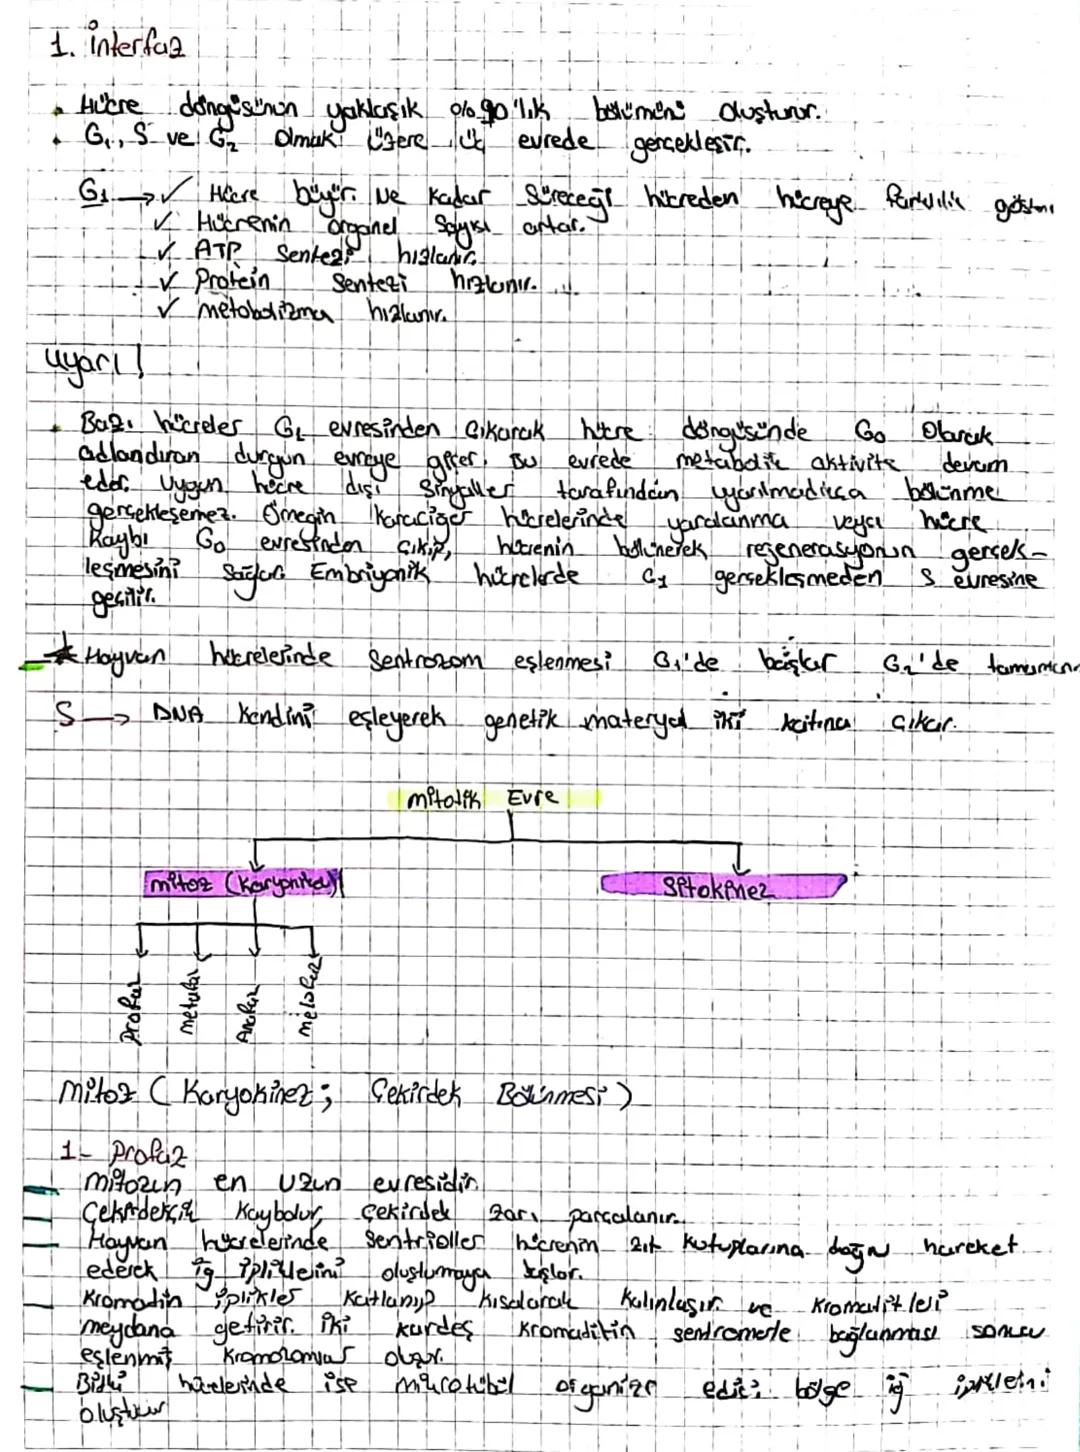 1. interfaz
• Hücre döngüsünün yaklaşık %90'lık bölümünü oluşturur.
• G1, S ve G2 olmak üzere üç evrede gerçekleşir.
G1 → ✓ Hücre büyür. Ne kadar süreceği hücreden hücreye farklılık
✓ Hücrenin organel sayısı artar.
✓ ATP sentezi hızlanır.
✓ Protein sentezi hızlanır.
✓ metobolizma hızlanır.
uyarı!
• Bazı hücreler G1 evresinden çıkarak hücre döngüsünde G0 olarak
adlandıran durgun evreye geçer. Bu evrede metabolik aktivite devam
eder. Uygun hücre dışı sinyaller tarafından uyarılmadıkça bölünme
gerçekleşemez. Örneğin karaciğer hücrelerinde yaralanma veya hücre
kaybı G0 evresinden çıkıp, hücrenin bölünerek rejenerasyonun gerçek-
leşmesini sağlar. Embriyonik hücrelerde G1 gerçekleşmeden S evresine
geçilir.
★ Hayvan hücrelerinde sentrozom eşlenmesi G1'de başlar G2'de
S → DNA kendini eşleyerek genetik materyal iki katına çıkar.
mitotik Evre
mitoz (Karyonitez)
Sitokinez
Profaz
metafaz
Anafaz
melofaz
mitoz (Karyokinez; Çekirdek Bölünmesi)
1- Profaz
mitozun en uzun evresidir.
Çekirdekçik kaybolur, çekirdek zarı parçalanır.
Hayvan hücrelerinde sentrioller hücrenin zıt kutuplarına doğru hareket
ederek iğ ipliklerini oluşturmaya başlar.
Kromadin iplikler katlanıp kısalarak kalınlaşır ve kromatitleri
meydana getirir. İki kardeş kromaditin sendromerle bağlanması sonucu
eşlenmiş kromozomlar oluşur.
Bitki hücrelerinde ise mikrotübül organize edici bölge iğ ipliklerini
oluşturur